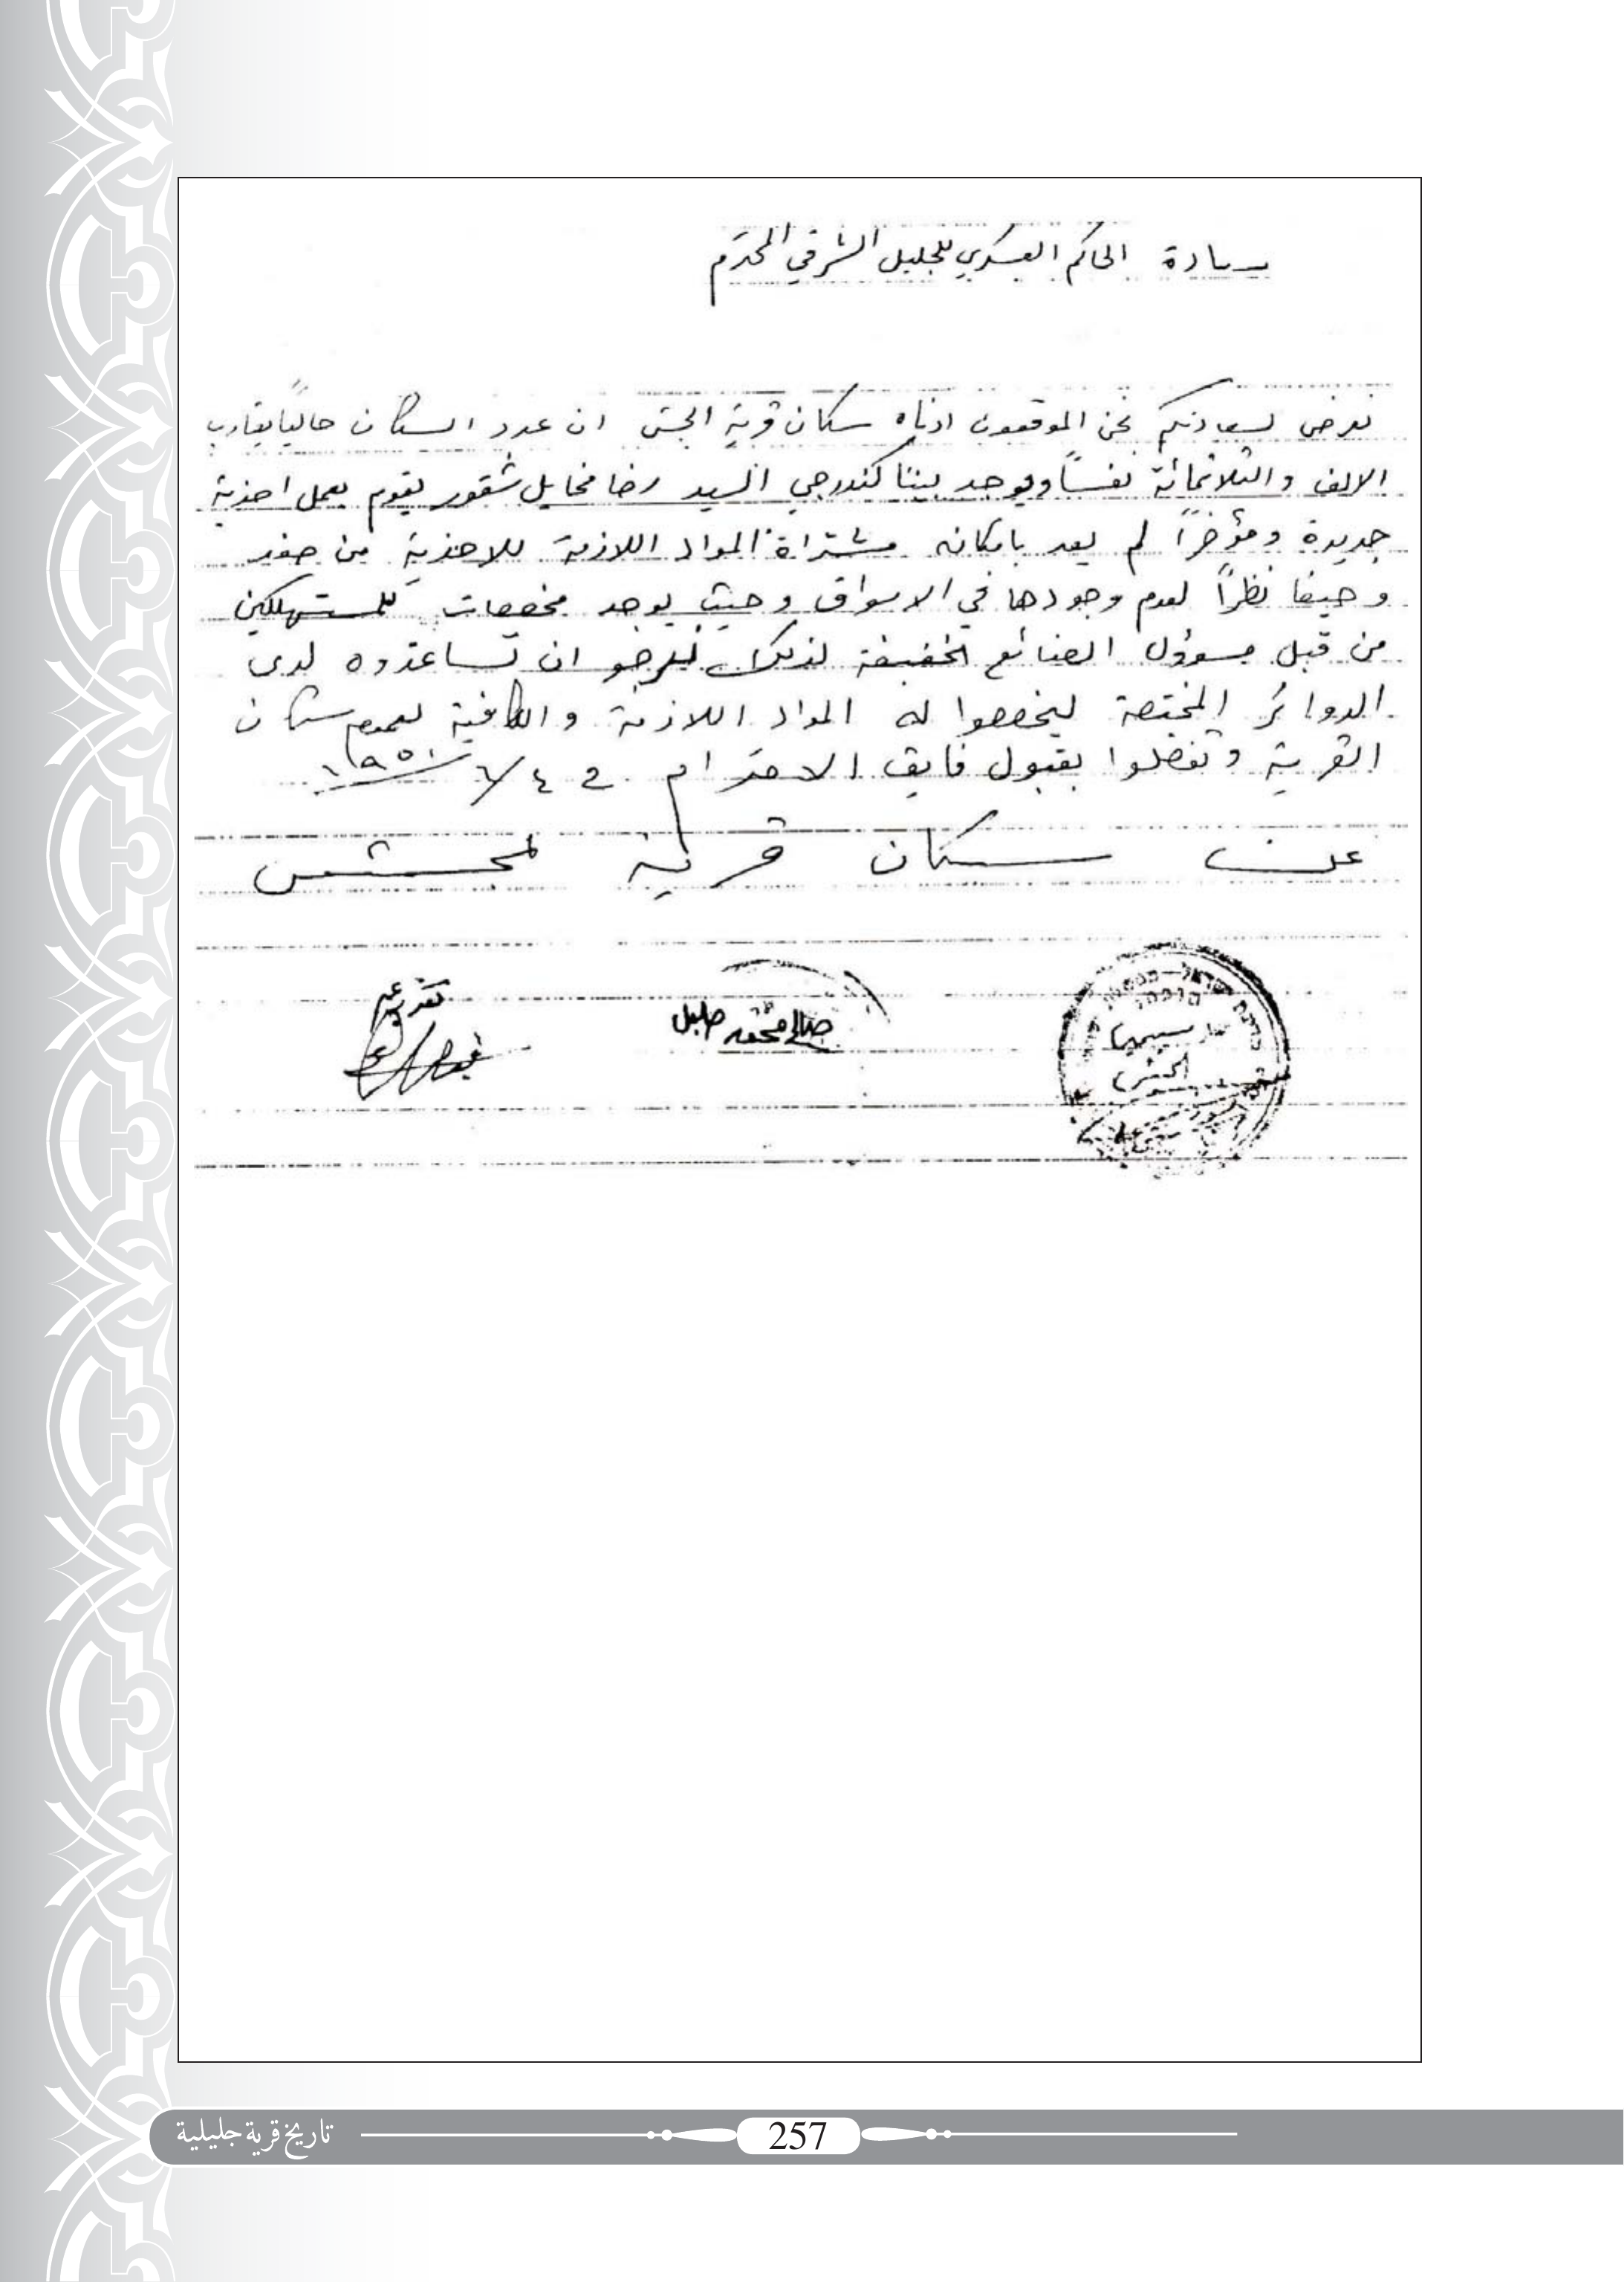 سيادة الحاكم العسكري للجليل الشرقي المحترم
نعرض لسعادتكم نحن الموقعون ادناه سكان قرية الجش ان عدد السكان حالياً يقارب
الالف والثلاثمائة نفساً ويوجد بيننا كندرجي السيد رضا مخايل شقور يقوم بعمل احذية
جديدة ومؤخراً لم يعد بامكانه مشتراة المواد اللازمة للاحذية من صفد
وحيفا نظراً لعدم وجودها في الاسواق وحيث يوجد مخصصات للمستهلكين
من قبل مسؤول الصنائع الخفيفة لذلك نرجو ان تساعدوه لدى
الدوائر المختصة ليخصصوا له المواد اللازمة والكافية لعموم سكان
القرية وتفضلوا بقبول فايق الاحترام في ٤/٦/١٩٥١
عن سكان قرية الجش
صالح محمد خليل
الجش
تاريخ قرية جليلية
257